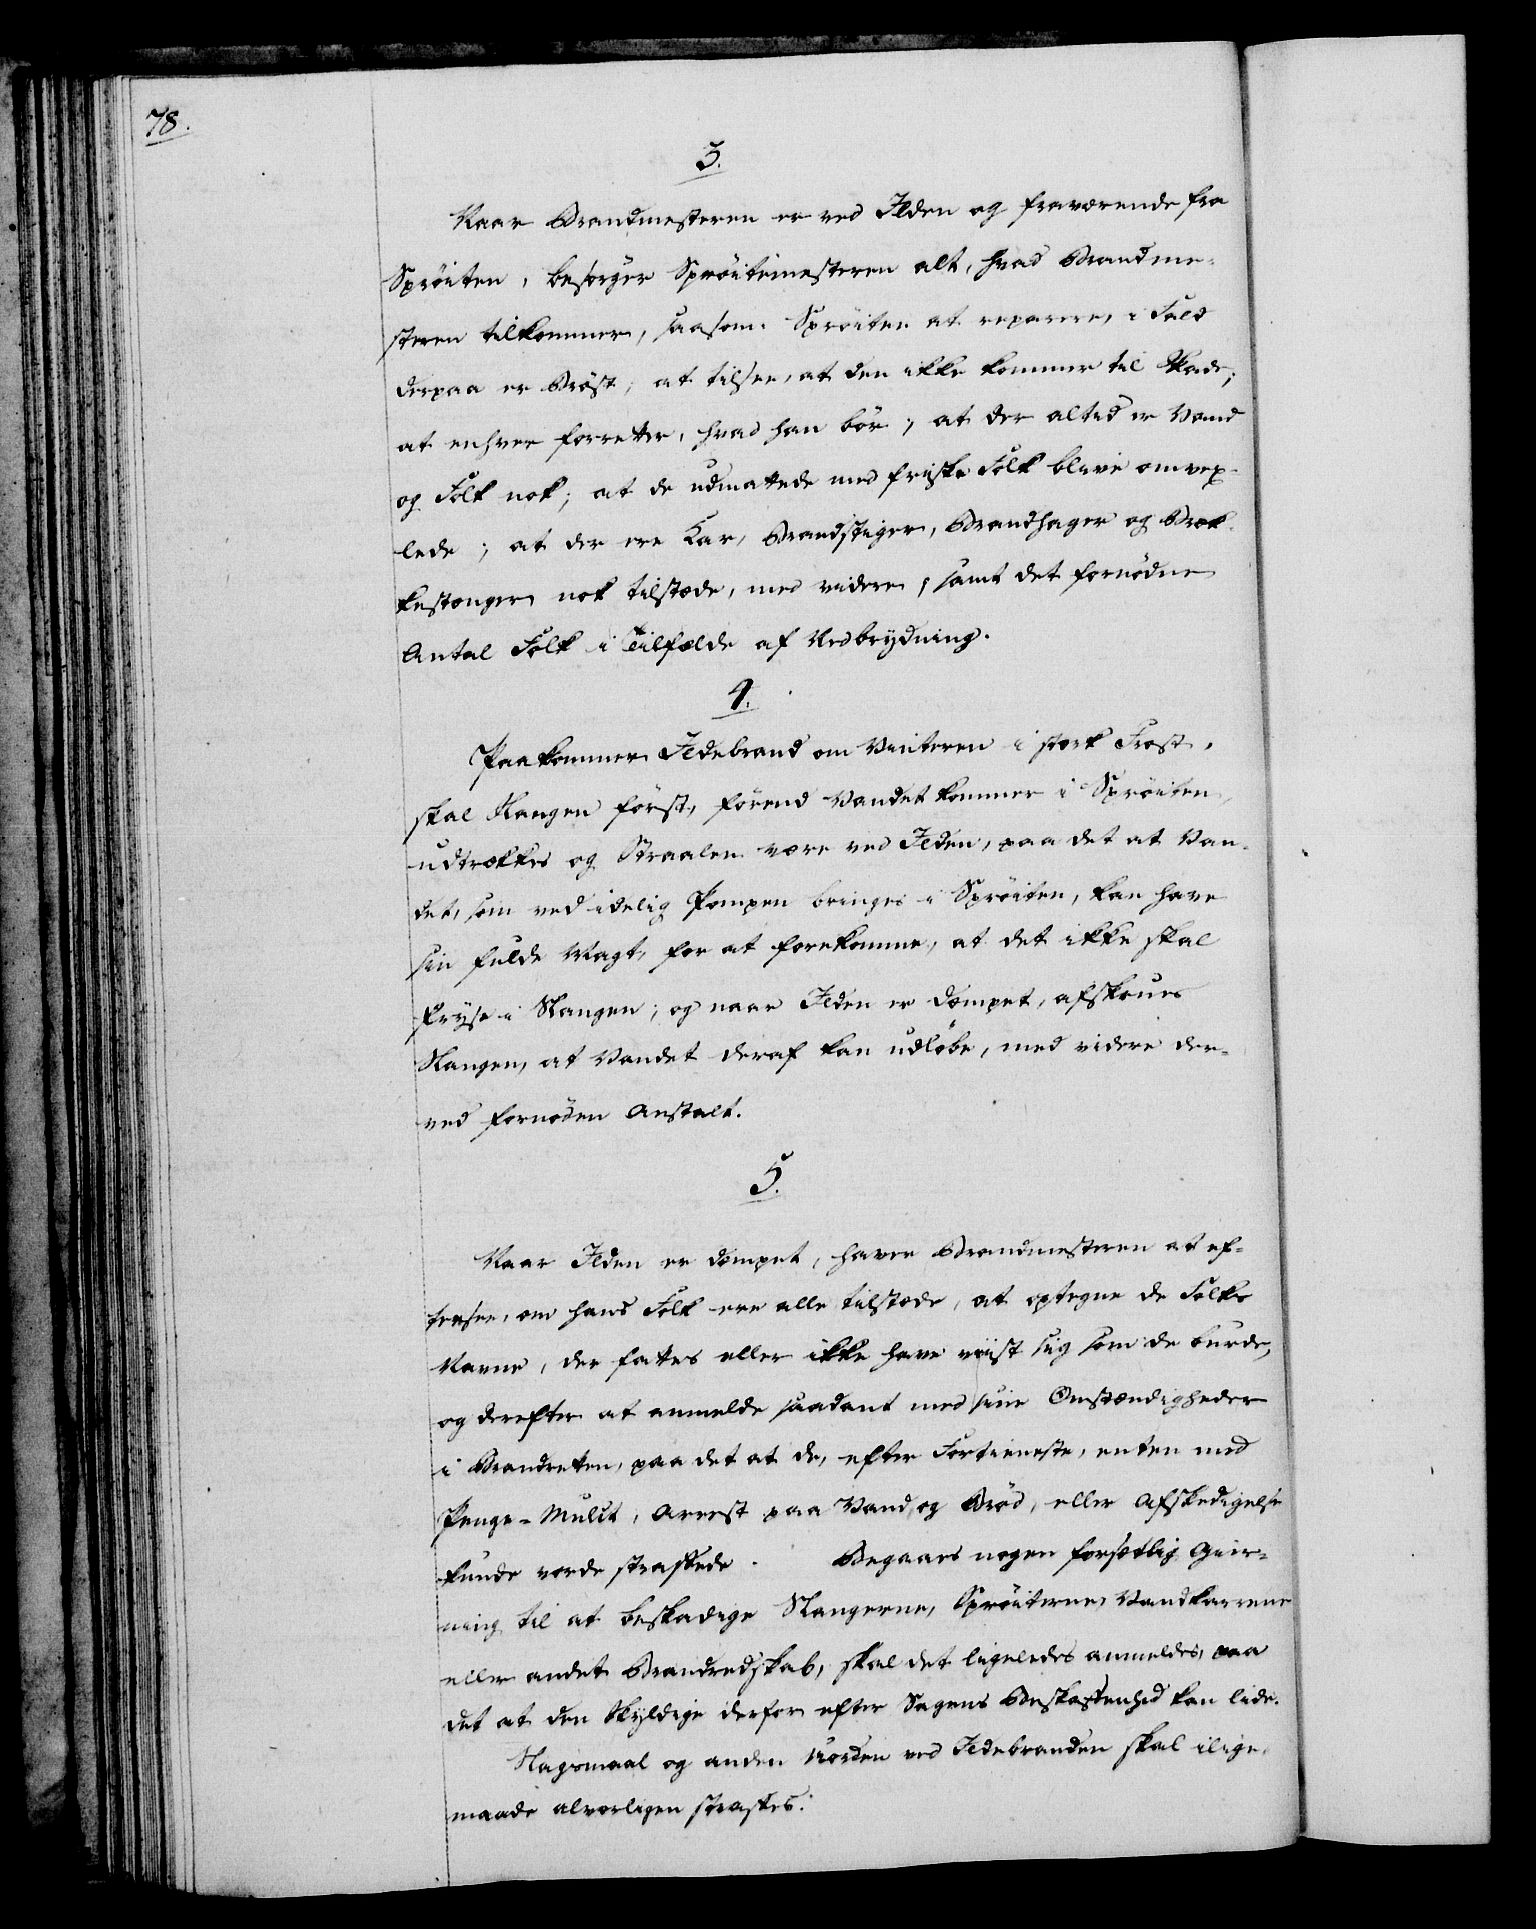 78.
3.
Naar Brandmesteren er ved Ilden og fraværende fra
Sprøiten, besørger Sprøitemesteren alt, hvad Brandme-
steren tilkommer, saasom: Sprøiten at reparere, i Fald
derpaa er Brøst; at tilsee, at den ikke kommer til Skade;
at enhver forretter, hvad han bør; at der altid er Vand
og Folk nok; at de udmattede med friske Folk blive omvex-
lede; at der ere Kar, Brandstiger, Brandhager og Bræk-
kestænger nok tilstæde, med videre, samt det fornødne
Antal Folk i Tilfælde af Nedbrydning.
4.
Paakommer Ildebrand om Vinteren i stærk Frost,
skal Slangen først, førend Vandet kommer i Sprøiten,
udtrækkes og Straalen være ved Ilden, paa det at Van-
det, som ved idelig Pompen bringes i Sprøiten, kan have
sin fulde Magt, for at forekomme, at det ikke skal
fryse i Slangen; og naar Ilden er dæmpet, afskrues
Slangen, at Vandet deraf kan udløbe, med videre der-
ved fornøden Anstalt.
5.
Naar Ilden er dæmpet, haver Brandmesteren at ef-
tersee, om hans Folk ere alle tilstæde, at optegne de Folks
Navne, der fattes eller ikke have viist sig som de burde,
og derefter at anmelde saadant med sine Omstændigheder
i Brandretten, paa det at de, efter Fortieneste, enten med
Penge-Mulct, Arrest paa Vand og Brød, eller Afskedigelse
kunde vorde straffede. Begaaes nogen forsætlig Gier-
ning til at beskadige Slangerne, Sprøiterne, Vandkarrene
eller andet Brandredskab, skal det ligeledes anmeldes, paa
det at den Skyldige derfor efter Sagens Beskaffenhed kan lide.
Slagsmaal og anden Uorden ved Ildebranden skal i lige-
maade alvorligen straffes.